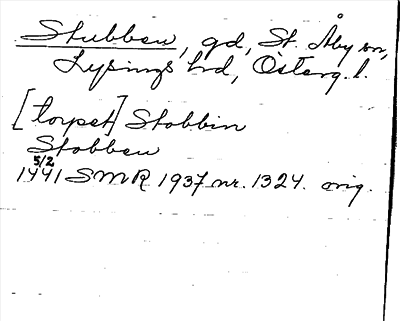 Stubben, gd, St. Åby sn,
Lysings hd, Österg. l.
[torpet] Stobbin
Stobben
5/2
1441 SMR 1937 nr. 1324. orig.